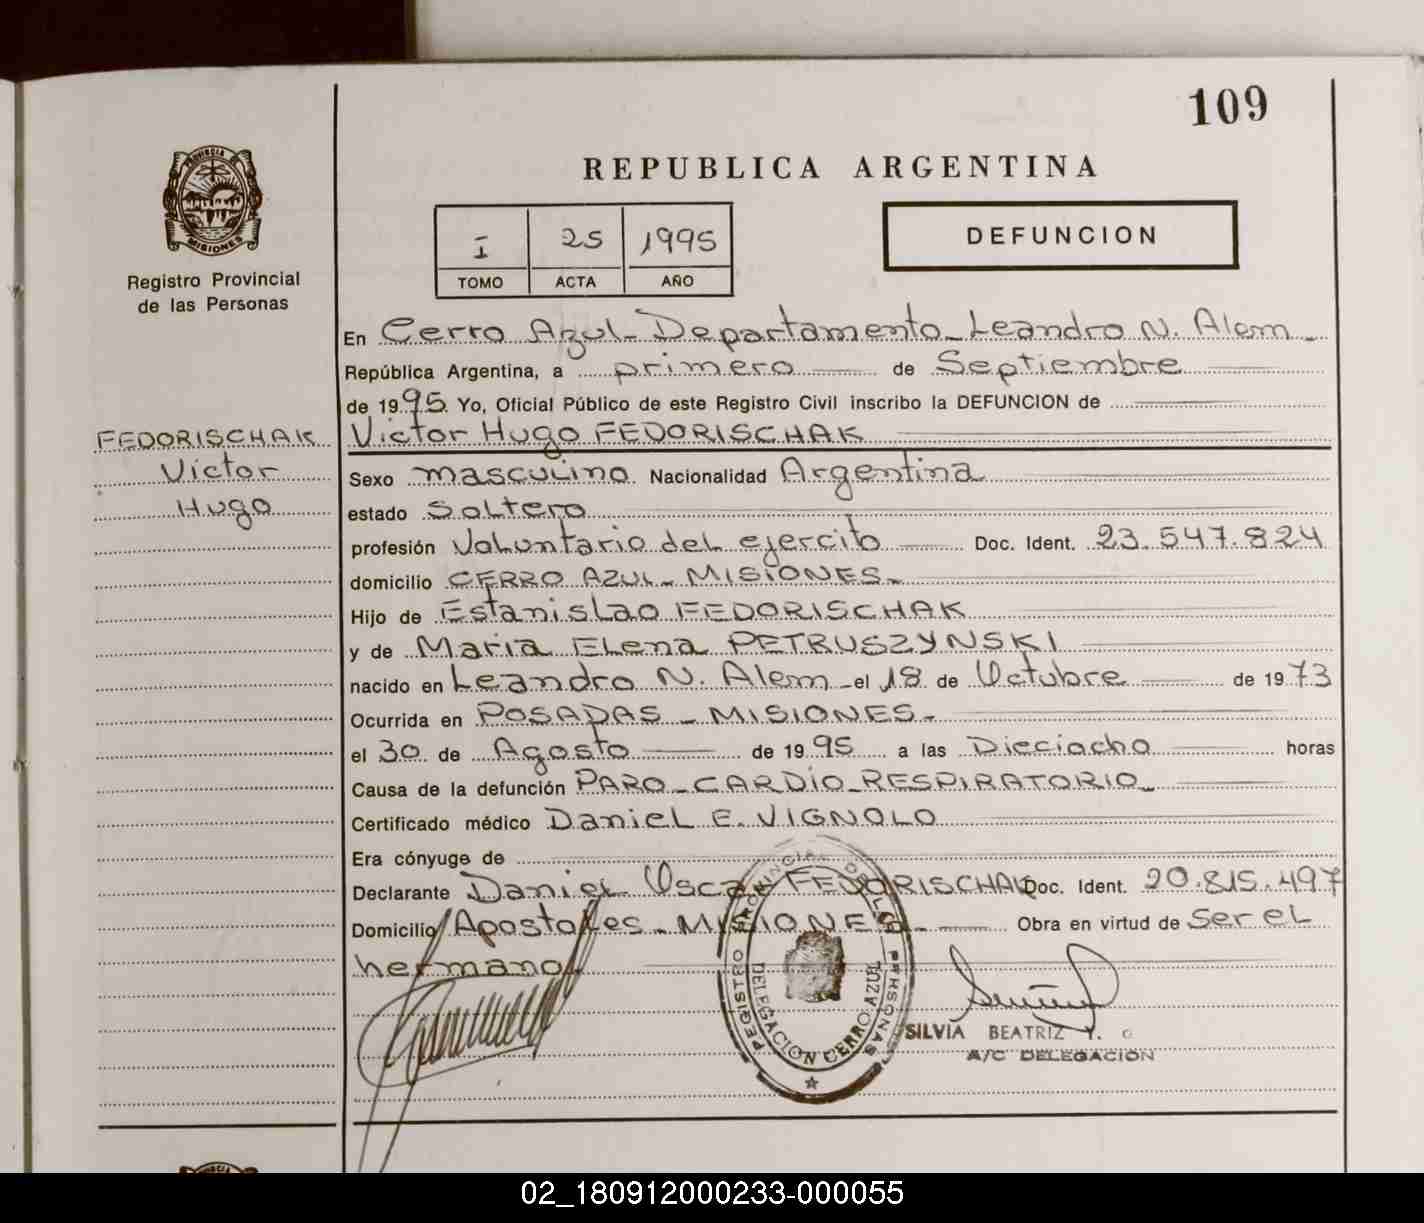 109
REPUBLICA ARGENTINA
PROVINCIA D
MISIONES
Registro Provincial
de las Personas
I 25 1995
TOMO ACTA AÑO
DEFUNCION
En Cerro Azul - Departamento - Leandro N. Alem -
República Argentina, a primero de Septiembre
de 1995 Yo, Oficial Público de este Registro Civil inscribo la DEFUNCION de
Victor Hugo FEDORISCHAK
FEDORISCHAK
Victor
Hugo
Sexo masculino Nacionalidad Argentina
estado Soltero
profesión Voluntario del ejercito Doc. Ident. 23.547.824
domicilio CERRO AZUL - MISIONES -
Hijo de Estanislao FEDORISCHAK
y de Maria Elena PETRUSZYNSKI
nacido en Leandro N. Alem - el 18 de Octubre de 1973
Ocurrida en POSADAS - MISIONES -
el 30 de Agosto de 1995 a las Dieciocho horas
Causa de la defunción PARO - CARDIO - RESPIRATORIO -
Certificado médico Daniel E. VIGNOLO
Era cónyuge de
Declarante Daniel Oscar FEDORISCHAK Doc. Ident. 20.815.497
Domicilio Apostoles - MISIONES - Obra en virtud de Ser el
hermano
REGISTRO PROVINCIAL DE LAS PERSONAS
DELEGACION CERRO AZUL
SILVIA BEATRIZ Y.
A/C DELEGACION
02_180912000233-000055